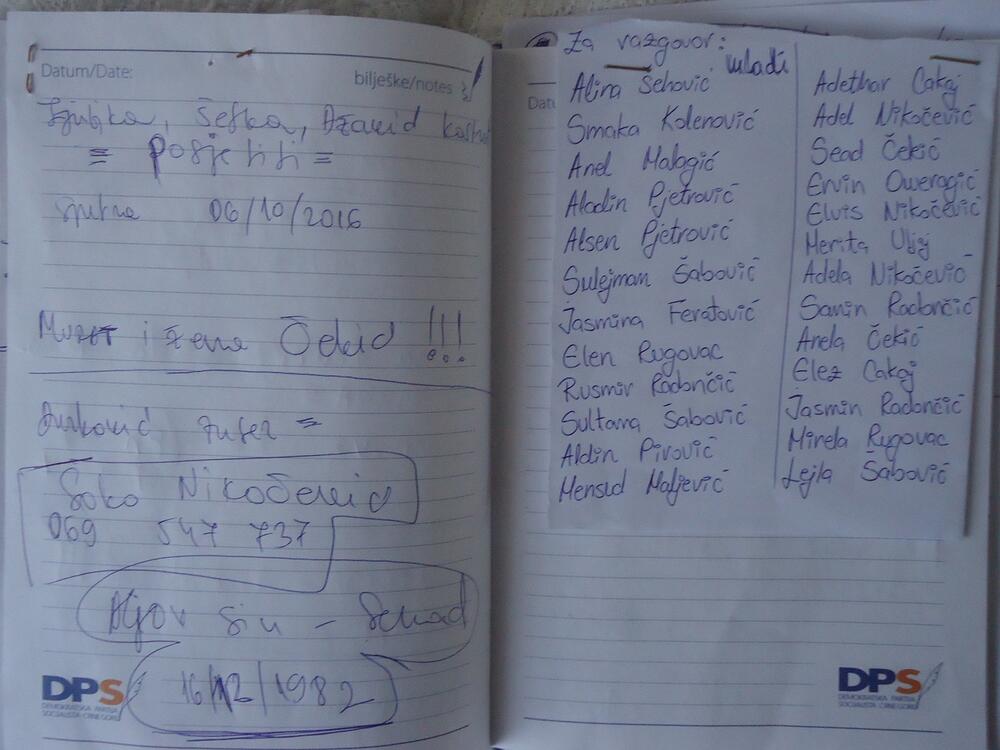 Datum/Date:
bilješke/notes
Ljubica, Šefka, Dževid
= posjetiti =
06/10/2016
i žena Čekić !!!
Zufer =
Soko Nikočević
069 547 737
sin - Senad
16/12/1982
DPS
DEMOKRATSKA PARTIJA
SOCIJALISTA CRNE GORE
Za razgovor:
mladi
Alina Šehović
Smaka Kolenović
Anel Malagić
Aladin Pjetrović
Alsen Pjetrović
Sulejman Šabović
Jasmina Feratović
Elen Rugovac
Rusmir Radončić
Sultana Šabović
Aldin Pirović
Mensud Maljević
Adethar Cakaj
Adel Nikočević
Sead Čekić
Ervin Omeragić
Elvis Nikočević
Merita Ukaj
Adela Nikočević
Samin Radončić
Anela Čekić
Elez Cakaj
Jasmin Radončić
Mirela Rugovac
Lejla Šabović
DPS
DEMOKRATSKA PARTIJA
SOCIJALISTA CRNE GORE